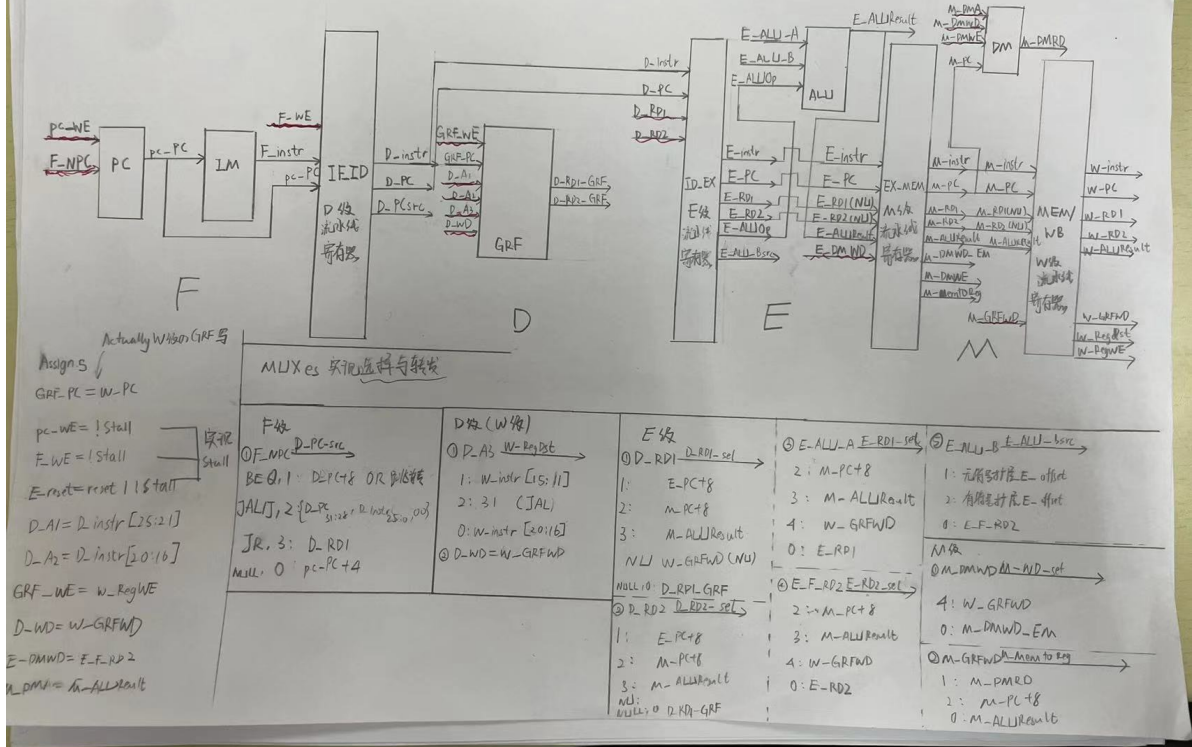 pc-WE
F-NPC
PC
pc-PC
IM
F-WE
F_instr
pc-PC
IEID
D级
流水线
寄存器
D_instr
D-PC
D-PCsrc
GRF-WE
GRF-PC
D-A1
D-A2
D-A3
D-WD
GRF
D-RD1-GRF
D-RD2-GRF
D-Instr
D-PC
D-RD1
D-RD2
ID_EX
E级
流水线
寄存器
E-instr
E-PC
E-RD1
E-RD2
E-ALUOp
E-ALU-Bsrc
E-ALU-A
E-ALU-B
E-ALUOp
ALU
E-ALUResult
E-instr
E-PC
E-RD1(NU)
E-RD2(NU)
E-ALUResult
E-DMWD
EX-MEM
M级
流水线
寄存器
M-instr
M-PC
M-RD1
M-RD2
M-ALUResult
M-DMWD_EM
M-DMWE
M-MemtoReg
M-DMA
M-DMWD
M-DMWE
M-PC
DM
M-DMRD
M-instr
M-PC
M-RD1(NU)
M-RD2(NU)
M-ALUResult
M-GRFWD
MEM/
WB
W级
流水线
寄存器
W-instr
W-PC
W-RD1
W-RD2
W-ALUResult
W-GRFWD
W-RegDst
W-RegWE
F
D
E
M
Actually W级的GRF写
Assigns
GRF-PC=W-PC
pc-WE=!Stall
F-WE=!Stall
E-reset=reset||Stall
实现
Stall
D_A1=D_instr[25:21]
D-A2=D_instr[20:16]
GRF-WE=W_RegWE
D-WD=W-GRFWD
E-DMWD=E_F_RD2
M_DMA=M-ALUResult
MUXes 实现选择与转发
F级
①F_NPC D-PC-src
BEQ,1: D-PC+8 OR
JAL/J,2{D-PC31:28,
JR,3: D-RD1
NULL, 0: pc-PC+4
D级(W级)
①D-A3 W-RegDst
1: W-instr[15:11]
2: 31 (JAL)
0: W-instr[20:16]
②D-WD=W-GRFWD
E级
①D-RD1 D-RD1-sel
1: E-PC+8
2: M-PC+8
3: M-ALUResult
NU W-GRFWD(NU)
NULL:0: D-RD1-GRF
②D-RD2 D-RD2-sel
1: E-PC+8
2: M-PC+8
3: M-ALUResult
NU:
NULL:0 D-RD1-GRF
③E-ALU-A E-RD1-sel
2: M-PC+8
3: M-ALUResult
4: W-GRFWD
0: E-RD1
④E-F-RD2 E-RD2-sel
2: M-PC+8
3: M-ALUResult
4: W-GRFWD
0: E-RD2
⑤E-ALU-B E-ALU-Bsrc
1: 无符号扩展E-offset
2: 有符号扩展E-offset
0: E_F-RD2
M级
①M-DMWD M-WD-sel
4: W-GRFWD
0: M-DMWD-EM
②M-GRFWD M-MemtoReg
1: M-DMRD
2: M-PC+8
0: M-ALUResult